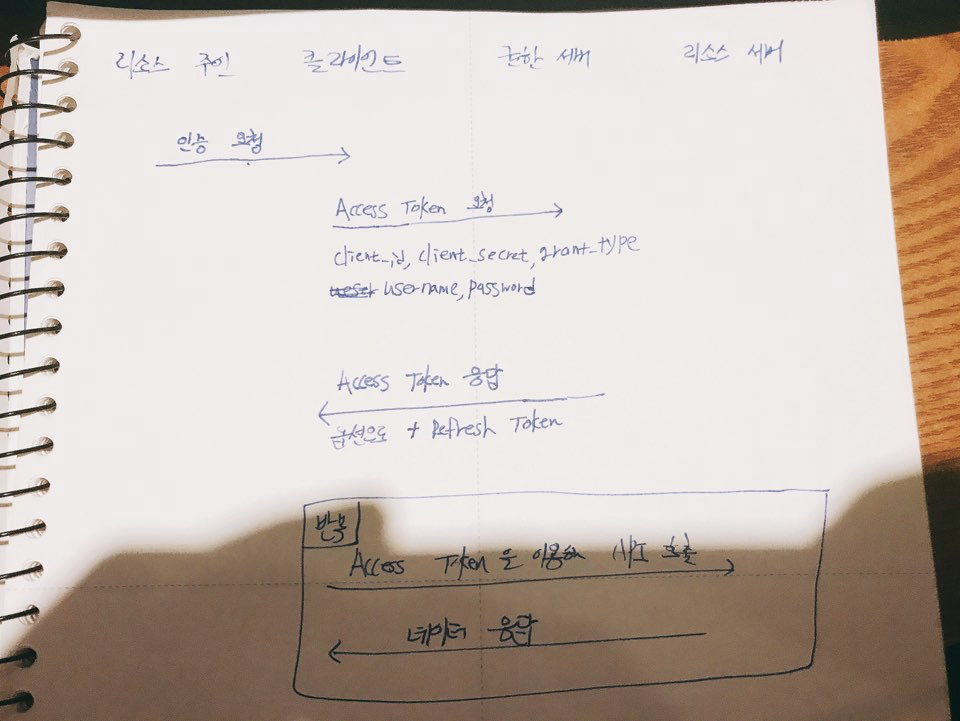 리소스 주인 클라이언트 권한 서버 리소스 서버
인증 요청
Access Token 요청
client_id, client_secret, grant_type
username, password
Access Token 응답
옵션으로 + Refresh Token
반복
Access Token을 이용해 API 호출
데이터 응답